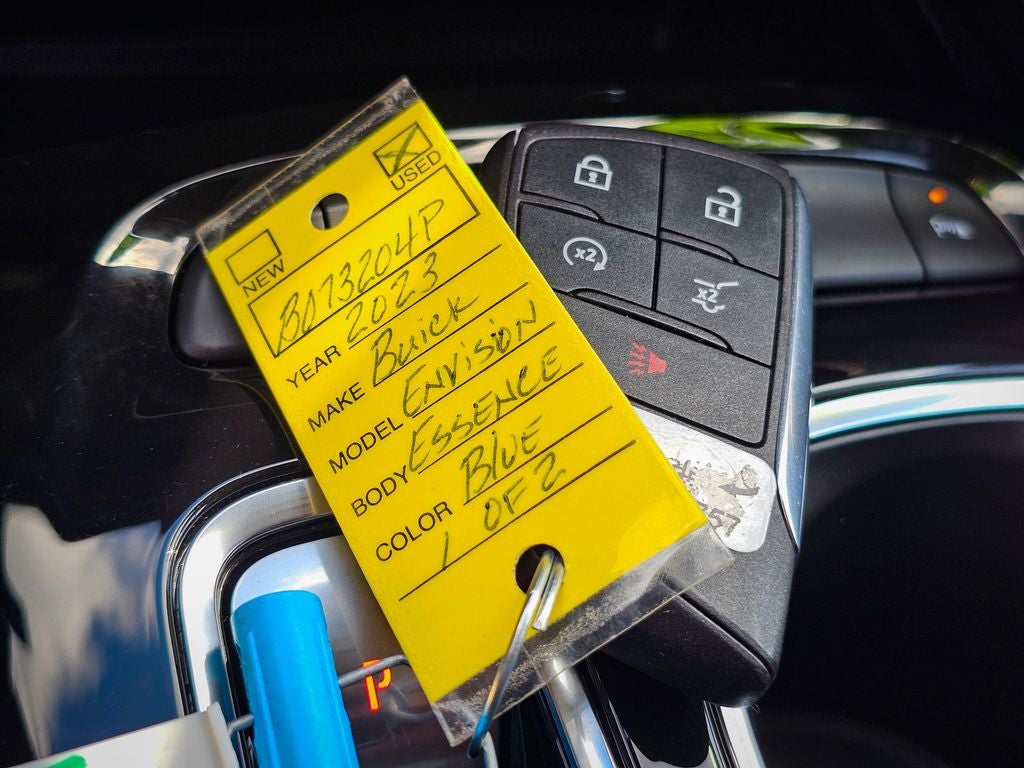 USED
NEW
B073204P
YEAR 2023
MAKE Buick
MODEL ENVISION
BODY ESSENCE
COLOR BlUE
1 OF 2
x2
x2
57
P